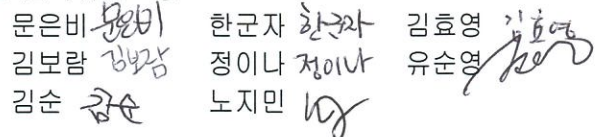 문은비 문은비 한군자 한군자 김효영 김효영
김보람 김보람 정이나 정이나 유순영
김순 김순 노지민